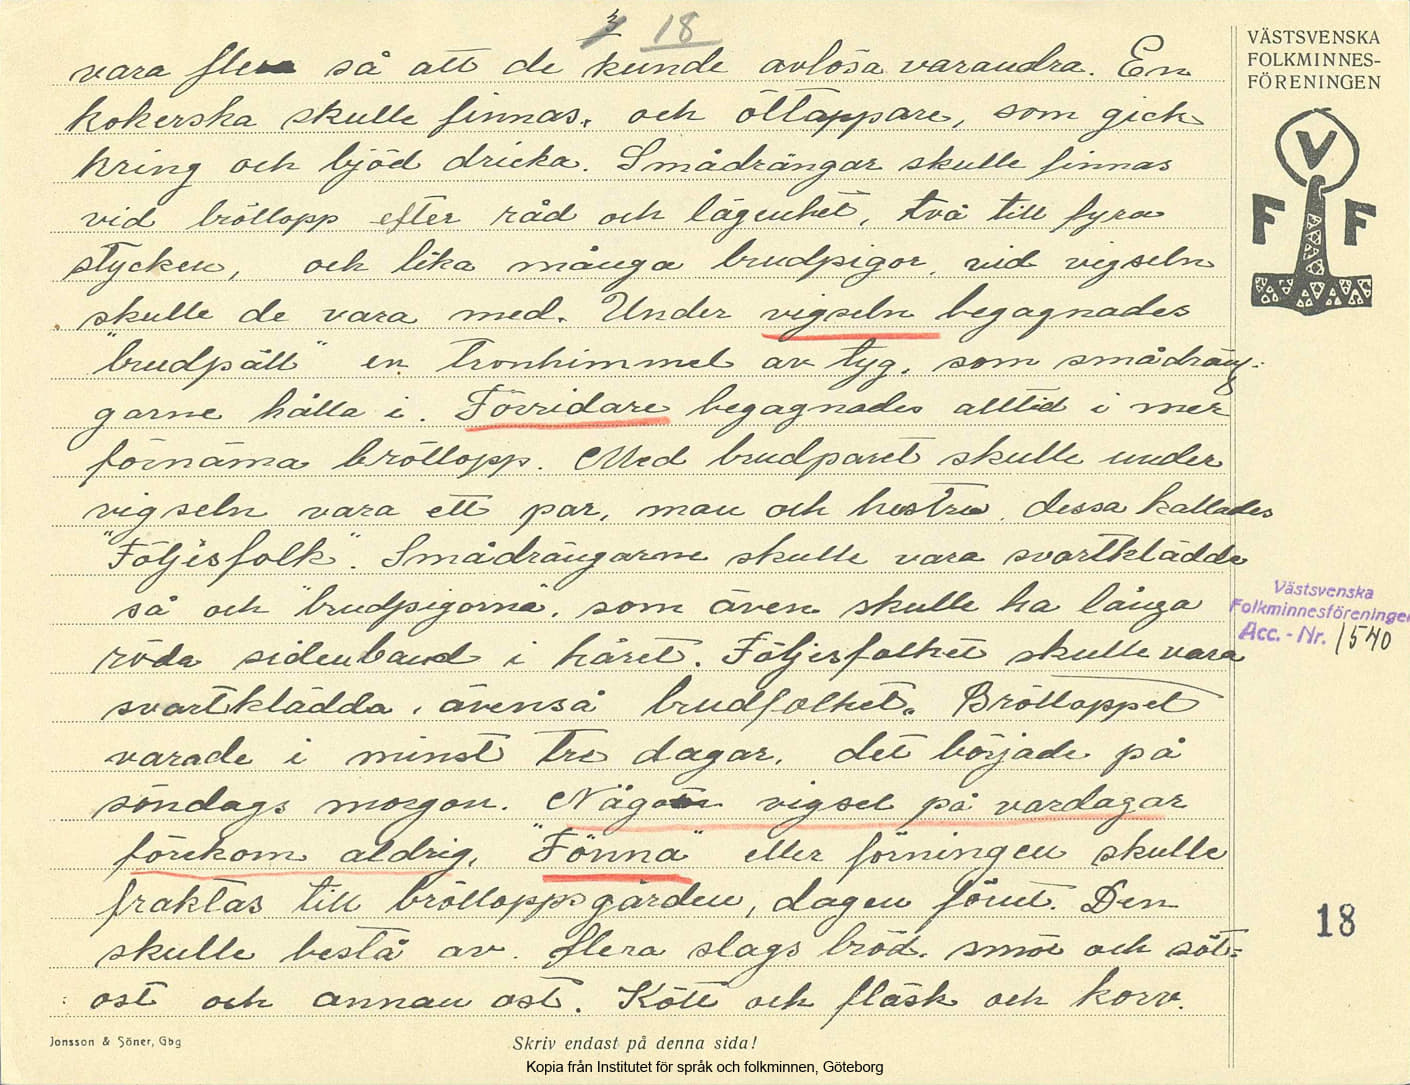 3 18
vara flera så att de kunde avlösa varandra. En
kokerska skulle finnas, och öltappare, som gick
kring och bjöd dricka. Smådrängar skulle finnas
vid bröllopp efter råd och lägenhet, två till fyra
stycken, och lika många brudpigor, vid vigseln
skulle de vara med. Under vigseln begagnades
"brudpäll" en tronhimmel av tyg, som smådrän-
garne hålla i. Förridare begagnades alltid i mer
förnäma bröllopp. Med brudparet skulle under
vigseln vara ett par, man och hustru, dessa kallades
"Följesfolk". Smådrängarne skulle vara svartklädda
så och "brudpigorna", som även skulle ha långa
röda sidenband i håret. Följesfolket skulle vara
svartklädda, ävenså brudfolket. Brölloppet
varade i minst tre dagar, det började på
söndags morgon. Någon vigsel på vardagar
förekom aldrig, "Fönna" eller förningen skulle
fraktas till brölloppsgården, dagen förut. Den
skulle bestå av flera slags bröd, smör och söt=
ost och annan ost. Kött och fläsk och korv.
VÄSTSVENSKA
FOLKMINNES-
FÖRENINGEN
V
F F
Västsvenska
Folkminnesföreningen
Acc. - Nr. 1540
18
Jonsson & Söner, Gbg
Skriv endast på denna sida!
Kopia från Institutet för språk och folkminnen, Göteborg